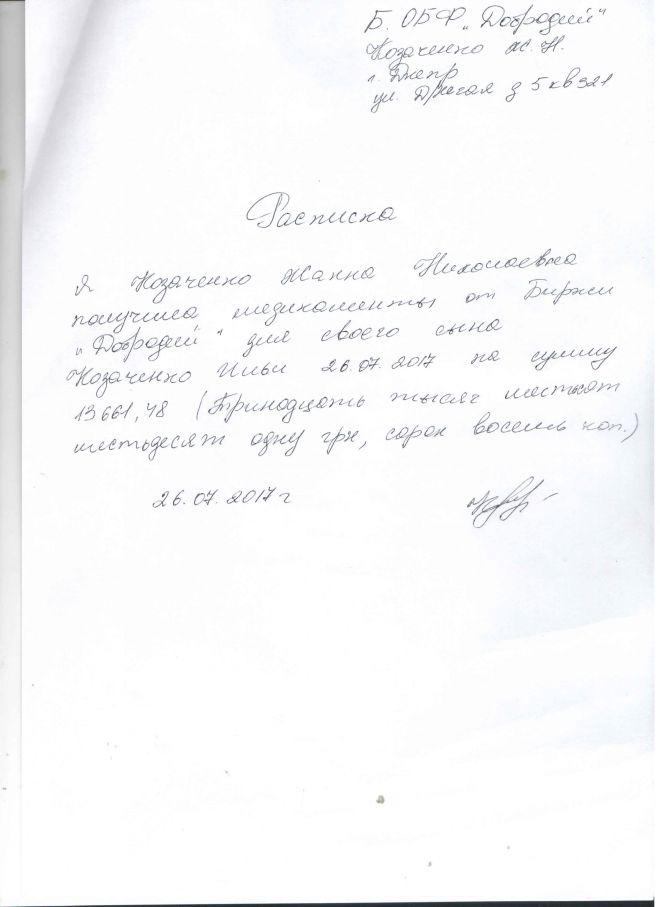 Б. ОБФ „Добродий"
Козаченко Ж. Н.
г. Днепр
ул. д 5 кв 321
Расписка
Я Козаченко Жанна Николаевна
получила медикаменты от Биржи
„Добродий" для своего сына
Козаченко Ильи 26.07.2017 на сумму
13661,48 (Тринадцать тысяч шестьсот
шестьдесят одну грн, сорок восемь коп.)
26.07.2017 г